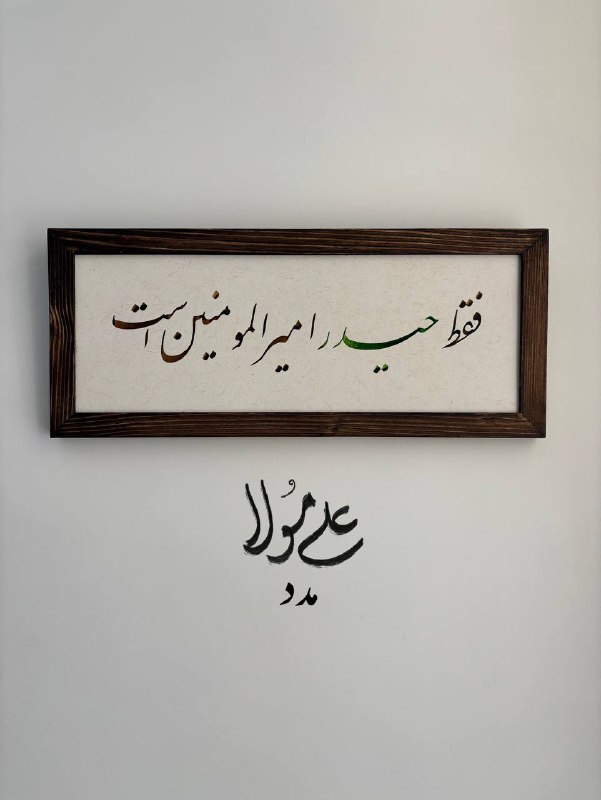 فقط حیدر امیرالمومنین است
علی مولا
مدد